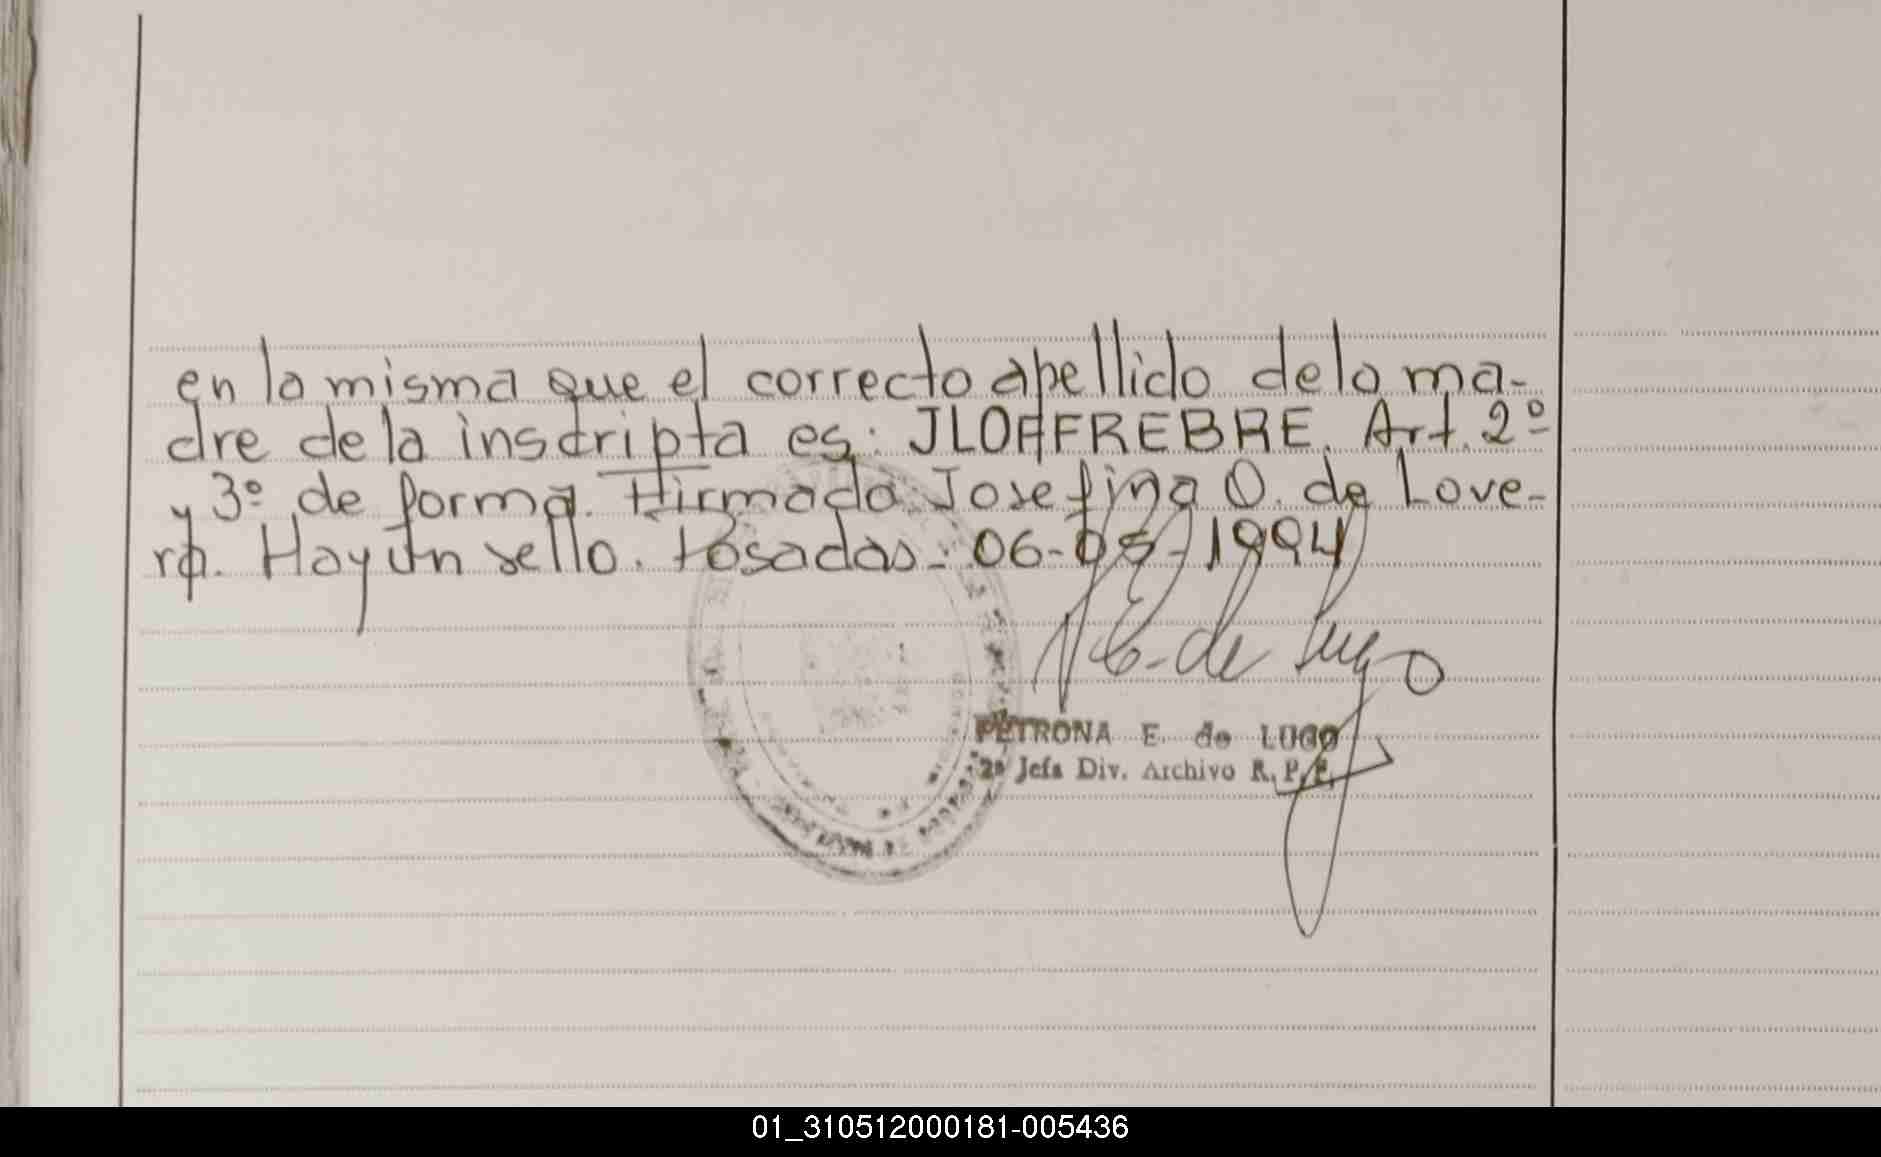 en la misma que el correcto apellido de la ma-
dre de la inscripta es: JLOFFREBRE. Art. 2º
y 3º de forma. Firmado Josefina O. de Love-
ra. Hay un sello. Posadas - 06-05-1994
P.E. de Lugo
PETRONA E. de LUGO
2ª Jefa Div. Archivo R.P.P.
01_310512000181-005436